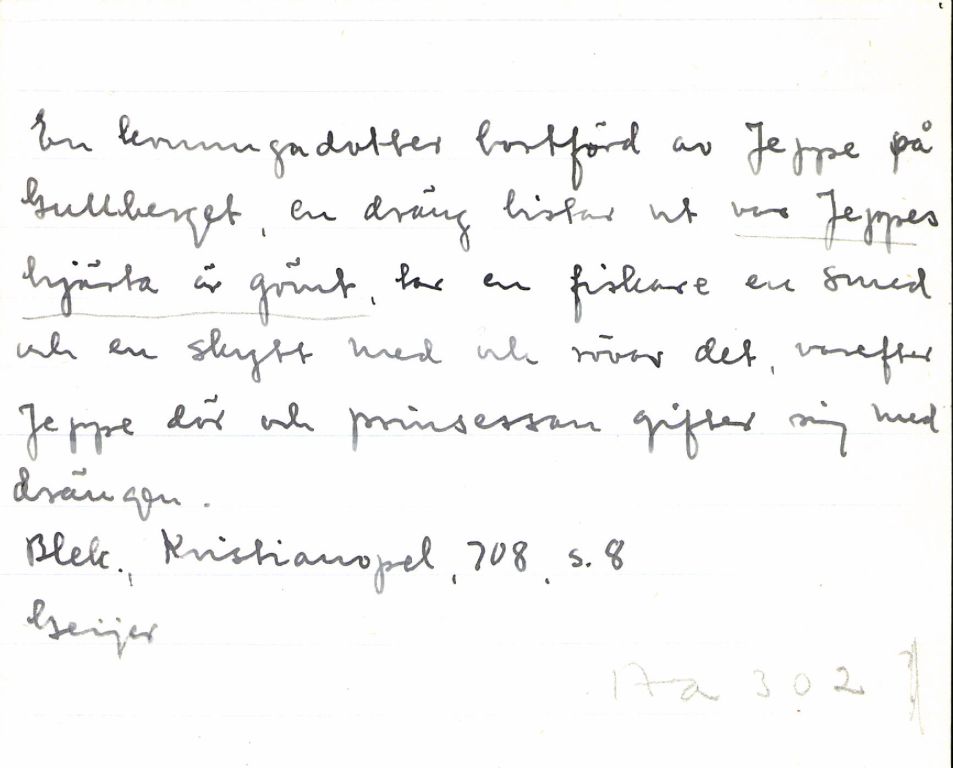 En konungadotter bortförd av Jeppe på
Gullberget, en dräng listar ut var Jeppes
hjärta är gömt, tar en fiskare en smed
och en skytt med och rövar det, varefter
Jeppe dör och prinsessan gifter sig med
drängen.
Blek., Kristianopel, 708, s. 8
Geijer
Aa 302